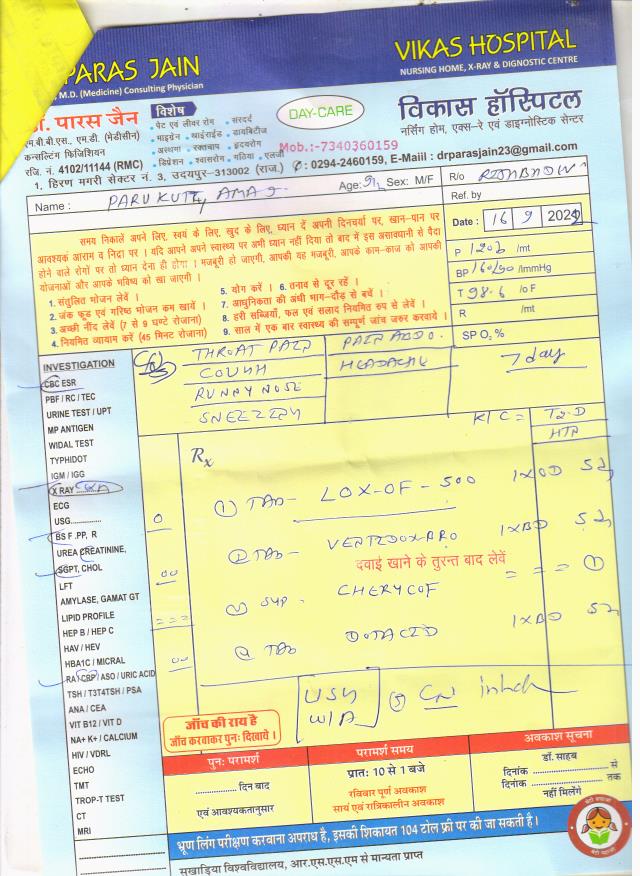 PARAS JAIN
VIKAS HOSPITAL
M.D. (Medicine) Consulting Physician
NURSING HOME, X-RAY & DIGNOSTIC CENTRE
डॉ. पारस जैन
विशेष
DAY-CARE
विकास हॉस्पिटल
एम.बी.बी.एस., एम.डी. (मेडीसीन)
• पेट एवं लीवर रोग • सरदर्द
नर्सिंग होम, एक्स-रे एवं डाइग्नोस्टिक सेन्टर
कन्सल्टिंग फिजिशियन
• माइग्रेन • थाईराईड • डायबिटीज
• अस्थमा • रक्तचाप • हृदयरोग
Mob.:-7340360159
रजि. नं. 4102/11144 (RMC)
• डिप्रेशन • श्वासरोग • गठिया • एलर्जी
✆: 0294-2460159, E-Maiil : drparasjain23@gmail.com
1, हिरण मगरी सेक्टर नं. 3, उदयपुर-313002 (राज.)
Name :
Age: Sex: M/F
R/o
Ref. by
समय निकालें अपने लिए, स्वयं के लिए, खुद के लिए, ध्यान दें अपनी दिनचर्या पर, खान-पान पर
आवश्यक आराम व निद्रा पर । यदि आपने अपने स्वास्थ्य पर अभी ध्यान नहीं दिया तो बाद में इस असावधानी से पैदा
होने वाले रोगों पर तो ध्यान देना ही होगा । मजबूरी हो जाएगी, आपकी यह मजबूरी, आपके काम-काज को आपकी
योजनाओं और आपके भविष्य को खा जाएगी ।
Date : 16 9 202
P 120 /mt
BP 160/90 /lmmHg
T 98.6 /oF
R /mt
SP O2 %
1. संतुलित भोजन लेवें ।
2. जंक फूड एवं गरिष्ठ भोजन कम खायें ।
3. अच्छी नींद लेवें (7 से 9 घण्टे रोजाना)
4. नियमित व्यायाम करें (45 मिनट रोजाना)
5. योग करें ।
6. तनाव से दूर रहें ।
7. आधुनिकता की अंधी भाग-दौड़ से बचें ।
8. हरी सब्जियाँ, फल एवं सलाद नियमित रुप से लेवें ।
9. साल में एक बार स्वास्थ्य की सम्पूर्ण जांच जरुर करवाये ।
THROAT PAIN
PAIN ABDO.
COUGH
HEADACHE
7 day
RUNNY NOSE
SNEEZING
K/C = T2-D
HTN
INVESTIGATION
CBC ESR
PBF / RC / TEC
URINE TEST / UPT
MP ANTIGEN
WIDAL TEST
TYPHIDOT
IGM / IGG
X RAY
ECG
USG
BS F .PP, R
UREA CREATININE,
SGPT, CHOL
LFT
AMYLASE, GAMAT GT
LIPID PROFILE
HEP B / HEP C
HAV / HEV
HBA1C / MICRAL
RA / CRP / ASO / URIC ACID
TSH / T3T4TSH / PSA
ANA / CEA
VIT B12 / VIT D
NA+ K+ / CALCIUM
HIV / VDRL
ECHO
TMT
TROP-T TEST
CT
MRI
Rx
① TAB- LOX-OF-500 1XOD
② TAB- 1XBD
दवाई खाने के तुरन्त बाद लेवें
SYP- CHERYCOF
TAB 1XBD
USG
W/A
जाँच की राय है
जाँच करवाकर पुनः दिखायें ।
पुनः परामर्श
दिन बाद
एवं आवश्यकतानुसार
परामर्श समय
प्रातः 10 से 1 बजे
रविवार पूर्ण अवकाश
सायं एवं रात्रिकालीन अवकाश
अवकाश सूचना
डॉ. साहब
दिनांक से
दिनांक तक
नहीं मिलेंगे
भ्रूण लिंग परीक्षण करवाना अपराध है, इसकी शिकायत 104 टोल फ्री पर की जा सकती है।
सुखाड़िया विश्वविद्यालय, आर.एस.एस.एम से मान्यता प्राप्त